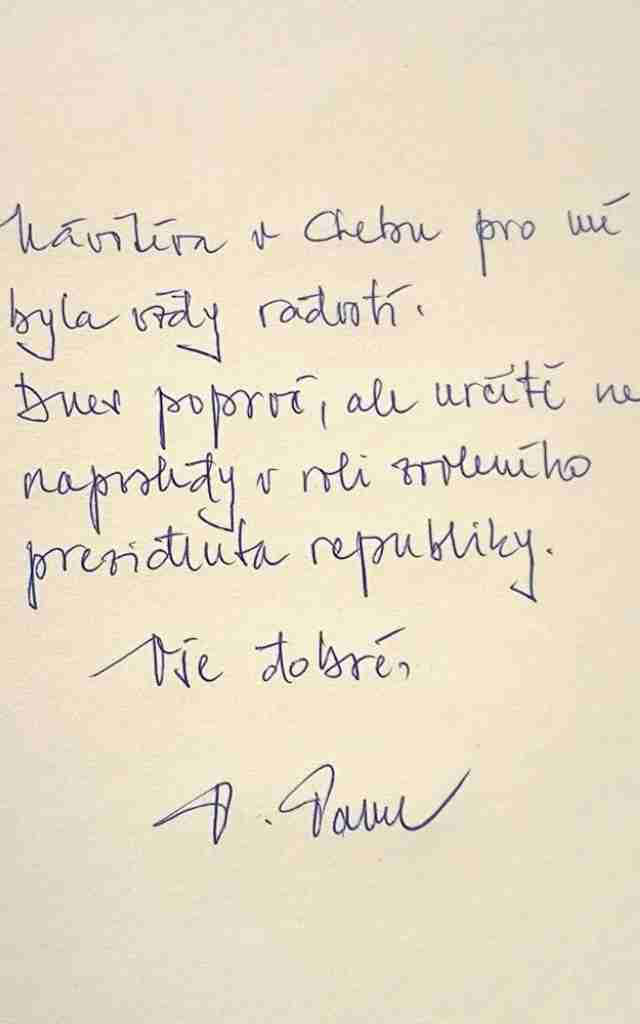 Návštěva v Chebu pro mě
byla vždy radostí.
Dnes poprvé, ale určitě ne
naposledy v roli zvoleného
prezidenta republiky.
Vše dobré,
P. Pavel